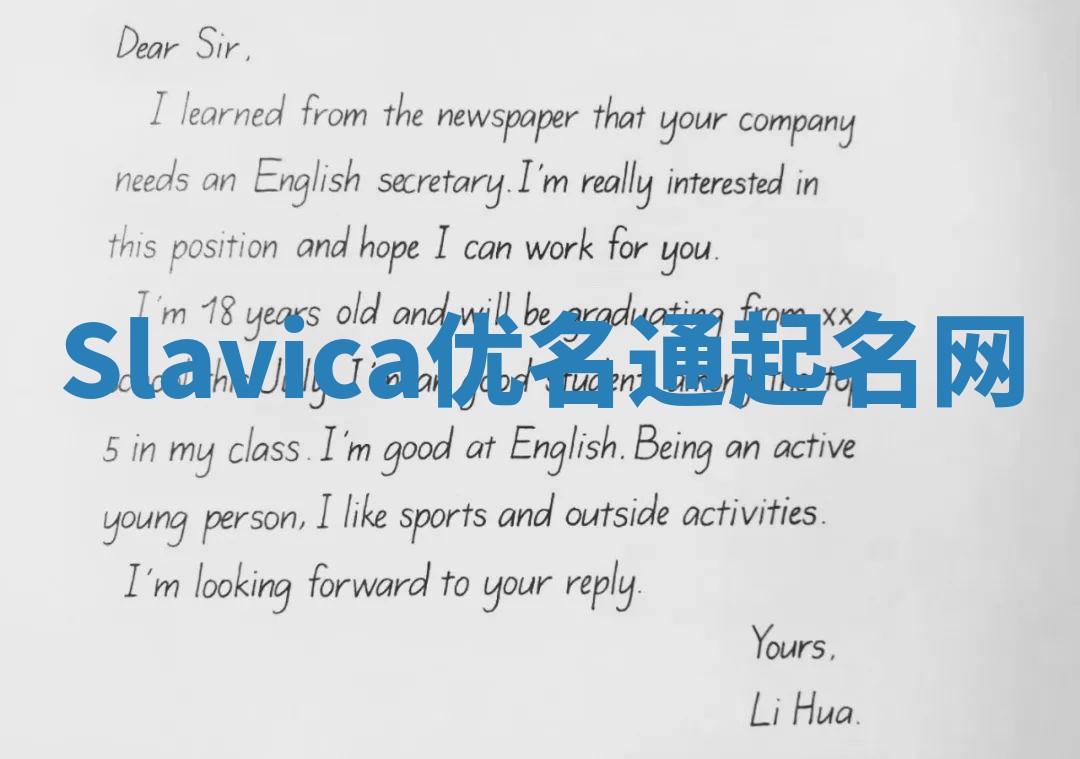 Dear Sir,
I learned from the newspaper that your company
needs an English secretary. I'm really interested in
this position and hope I can work for you.
I'm 18 years old and will be graduating from xx
Slavica优名通起名网
this July. I'm a good student among the top
5 in my class. I'm good at English. Being an active
young person, I like sports and outside activities.
I'm looking forward to your reply.
Yours,
Li Hua.